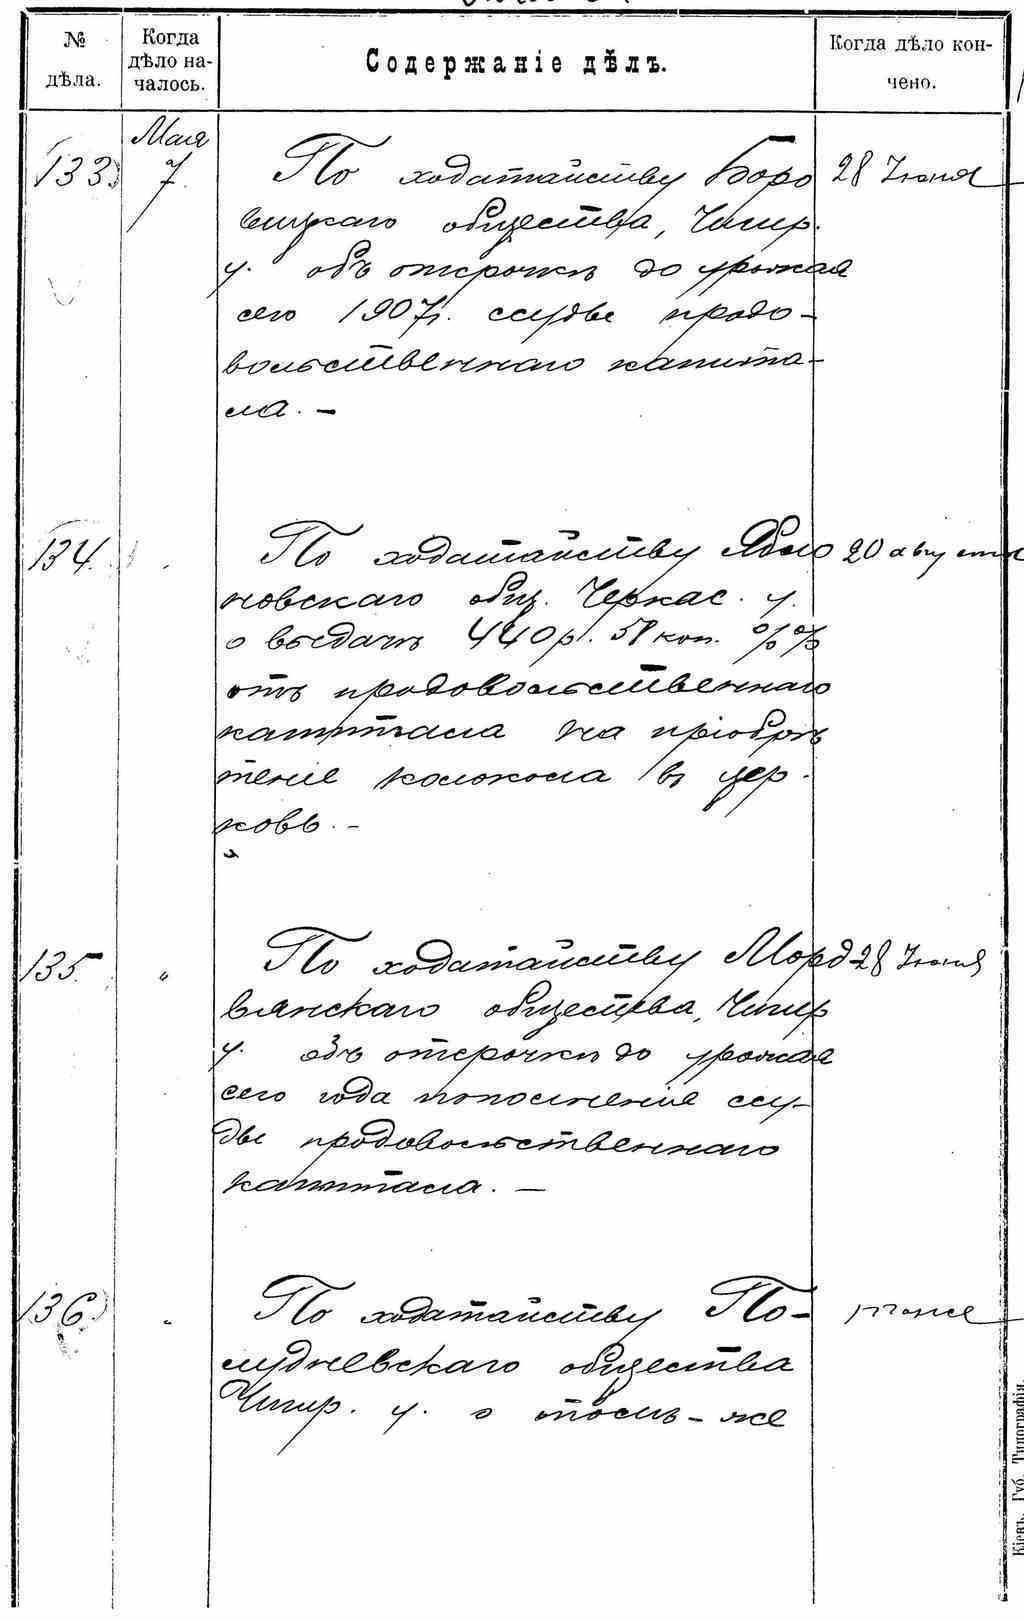 №
дѣла.
Когда
дѣло на-
чалось.
Содержаніе дѣлъ.
Когда дѣло кон-
чено.
133
Мая
7.
По ходатайству Боро
вицкаго общества, Чигир.
у. объ отсрочкѣ до урожая
сего 1907 г. ссуды продо-
вольственнаго капита-
ла. –
28 Іюня
134.
"
По ходатайству Ябло
новскаго общ. Черкас. у.
о выдачѣ 440 р. 58 коп. %%
отъ продовольственнаго
капитала на пріобрѣ
теніе колокола въ цер-
ковь. –
20 августа
135.
"
По ходатайству Мордв
вянскаго общества, Чигир
у. объ отсрочкѣ до урожая
сего года пополненія ссу-
ды продовольственнаго
капитала. –
28 Іюня
136
"
По ходатайству По-
лудневскаго общества
Чигир. у. о томъ-же
тоже
Кіевъ. Губ. Типографія.